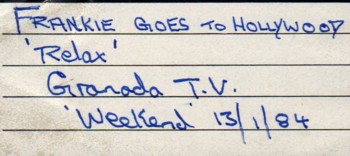 FRANKIE GOES TO HOLLYWOOD
'Relax'
Granada T.V.
'Weekend' 13/1/84